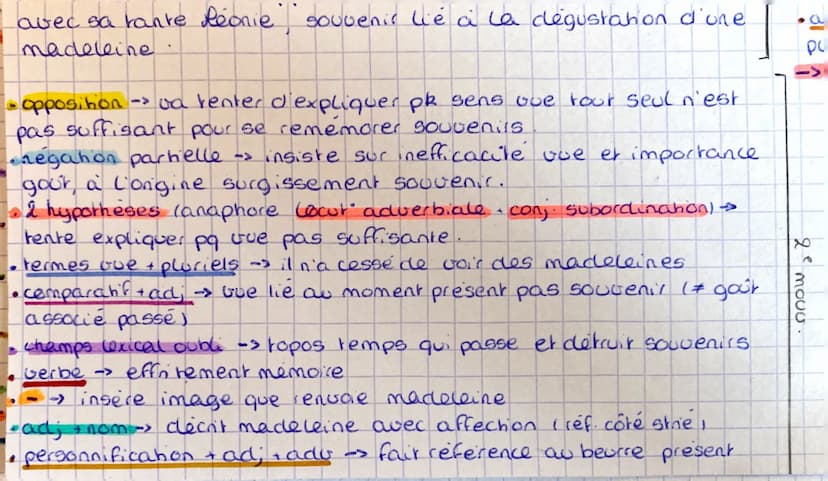 avec sa tante Léonie, souvenir lié à la dégustation d'une
madeleine.
• opposition -> va tenter d'expliquer pk sens vue tout seul n'est
pas suffisant pour se remémorer souvenirs.
• négation partielle -> insiste sur inefficacité vue et importance
goût, à l'origine surgissement souvenir.
• 2 hypothèses (anaphore locut° adverbiale + conj. subordination) ->
tente expliquer pq vue pas suffisante.
• termes vue + pluriels -> il n'a cessé de voir des madeleines
• comparatif + adj -> vue lié au moment présent pas souvenir (≠ goût
associé passé)
• champs lexical oubli -> topos temps qui passe et détruit souvenirs
• verbe -> effritement mémoire
• - -> insère image que renvoie madeleine
• adj + nom -> décrit madeleine avec affection (réf. côté strié)
• personnification + adj + adv -> fait référence au beurre présent
2e mouv.
• a
pu
->